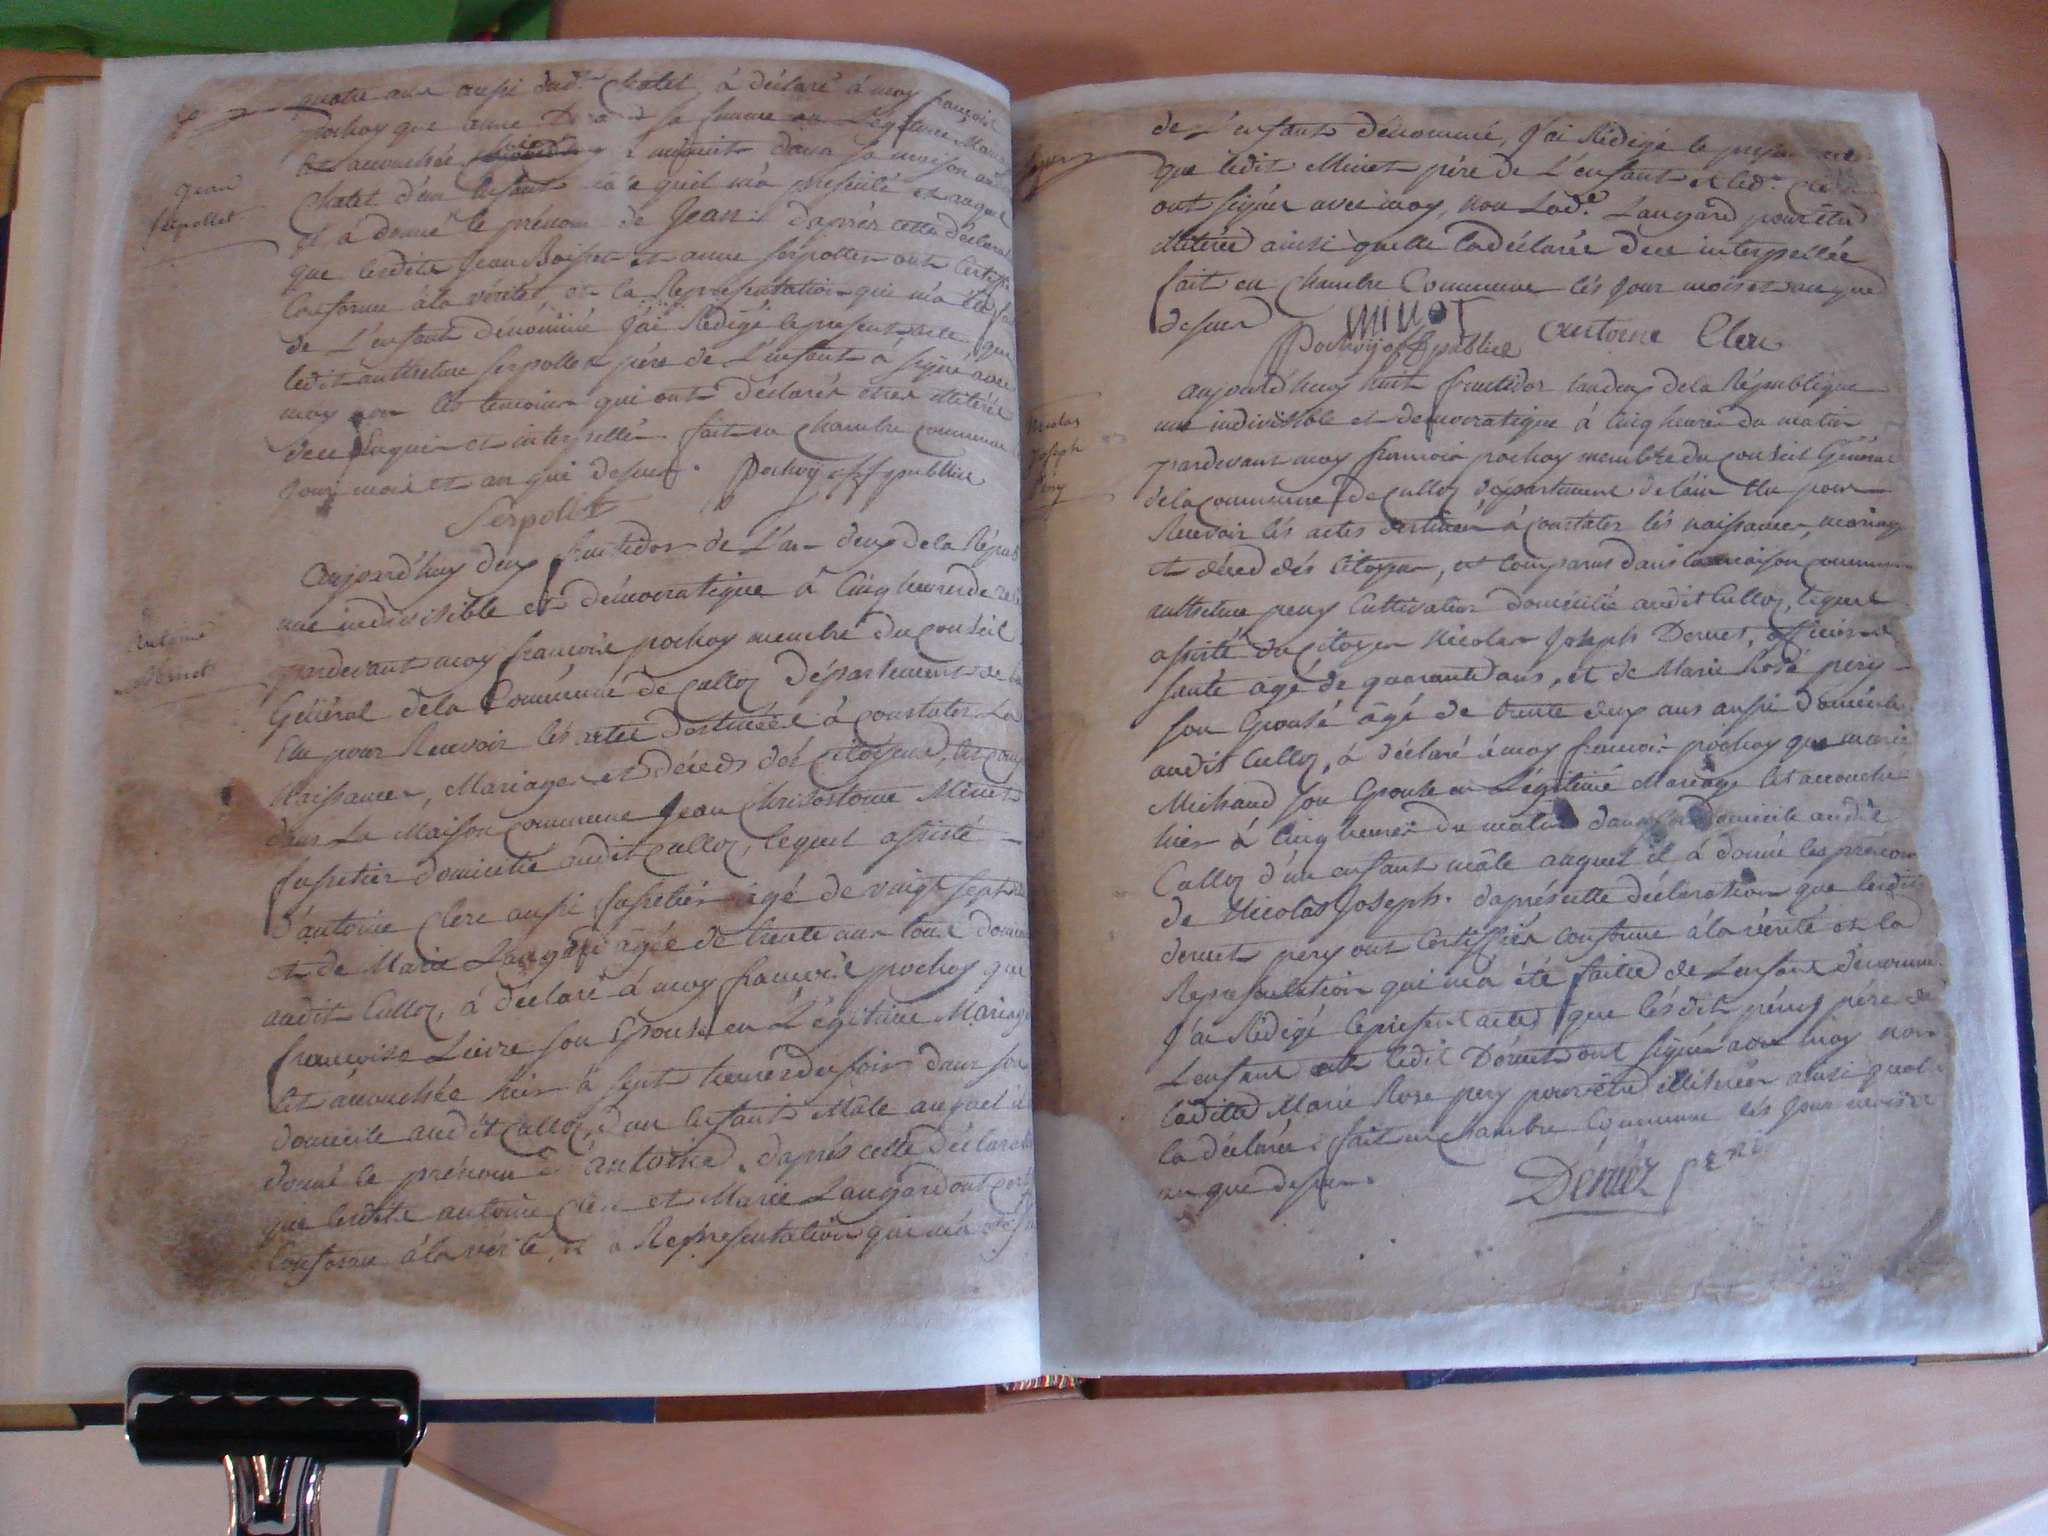 quatre ans aussi dud. Chatel, à déclaré à moy françois
pochoy que anne sa femme en Légitime Maria
Est accouchée dans sa maison au
Jean
Serpollet
Chatel d'un Enfant quil m'a presenté et auquel
il à donné le prénom de Jean. d'après cette déclara
que lesdits Jean Boisset et anne Serpollet ont Certiffi
Conforme à la vérité, et la Representation qui m'a été fai
de L'enfant dénommé J'ai Rédigé le present acte que
ledit anthelme Serpollet père de L'enfant à signé avec
moy non les temoins qui ont déclarés etres illitérés
dece Enquis et interpellés. fait en Chambre Commune
Jour mois et an que dessus. Pochoÿ off publiue
Serpolet
Aujourd'huy deux fructidor de L'an deux dela Répub
une indivisible et démocratique à Cinq heures de
Antoine
Minet
pardevant moy françois pochoy membre du Conseil
Général dela Commune de Culloz Département de
Elu pour Recevoir lès actes destinées à Constater La
Naissances, Mariages et déceds dés Citoyens, est comp
dans La Maison Commune Jean Chrisostome Minet
domicilié audit Culloz, lequel assisté
d'antoine Clerc aussi agé de vingt sept
et de Marie Laugard âgée de trente ans tous domici
audit Culloz, à déclaré à moy françois pochoy que
françoise Lievre son Epouse en Légitime Mariage
Est accouchée hier à sept heures du soir dans son
domicile audit Culloz, d'un Enfant Mâle auquel il
donné le prénom d'antoine. d'après cette déclarat
que lesdits antoine Clerc et Marie Laugard ont Certi
Conforme à la vérité, et a Representation qui m'a été
de L'enfant dénommé, J'ai Rédigé le presen
que ledit Minet père de L'enfant et led. Clerc
ont signés avec moy, non Lade. Laugard pour être
illitérée ainsi quelle la déclarée dece interpellée
fait en Chambre Commune lés Jour mois et an que
dessus
MINOT
Pochoÿ off publiue antoine Clerc
aujourd'huy huit fructidor lan deux dela République
une indivisible et democratique à Cinq heures du matin
Nicolas
Joseph
Pery
pardevant moy francois pochoy membre du Conseil Général
dela Commune de Culloz département de lain Elu pour
Recevoir lés actes destinés à Constater lés naissances, mariage
et déced dés Citoyens, est Comparus dans la maison commune
anthelme pery Cultivateur domicilié audit Culloz, lequel
assisté du Citoyen Nicolas Joseph Dernet, officier de
santé agé de quarante ans, et de Marie Rose pery
son Epouse âgé de trente deux ans aussi domicilié
audit Culloz, à déclaré à moy francois pochoy que marie
Michaud son Epouse en Légitime Mariage Est accouchée
hier à Cinq heures du matin dans domicile audit
Culloz d'un enfant mâle auquel il à donné les prénom
de Nicolas Joseph. d'après cette déclaration que lesdits
dernet pery ont Certiffiés conforme à la vérité et la
Representation qui m'a été faitte de Lenfant dénommé
J'ai Rédigé le present acte que lésdit péry père de
Lenfant et ledit Dernet ont signés avec moy non
laditte Marie Rose pery pour être illitérée ainsi quelle
la déclarée. fait en Chambre Commune lés Jour mois et
an que dessus.